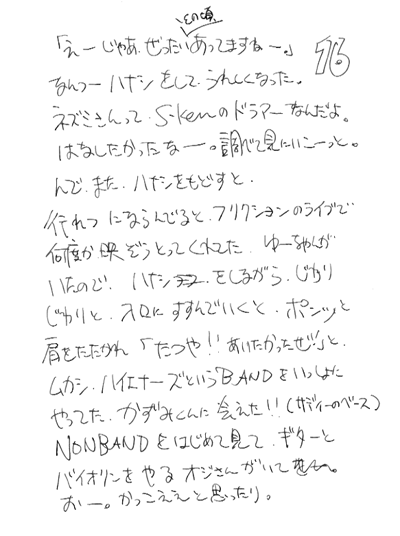 その頃
「えーじゃあ、ぜったいあってますねー。」
16.
なんつーハナシをして、うれしくなった。
ネズミさんって、S-kenのドラマーなんだよ。
はなしたかったなー。調べて見にいこーっと。
んで、また、ハナシをもどすと、
行れつにならんでると、フリクションのライブで
何度か映ぞうとってくれてた、ゆーちゃんが
いたので、ハナシをしながら、じわり
じわりと、入口にすすんでいくと、ポンッと
肩をたたかれ「たつや!!あいたかったぜ!」と、
ムカシ、ハイエナーズというBANDをいっしょに
やってた、かずみくんに会えた!!(サディーのベース)
NONBANDをはじめて見て、ギターと
バイオリンをやるオジさんがいて
おー。かっこええと思ったり。